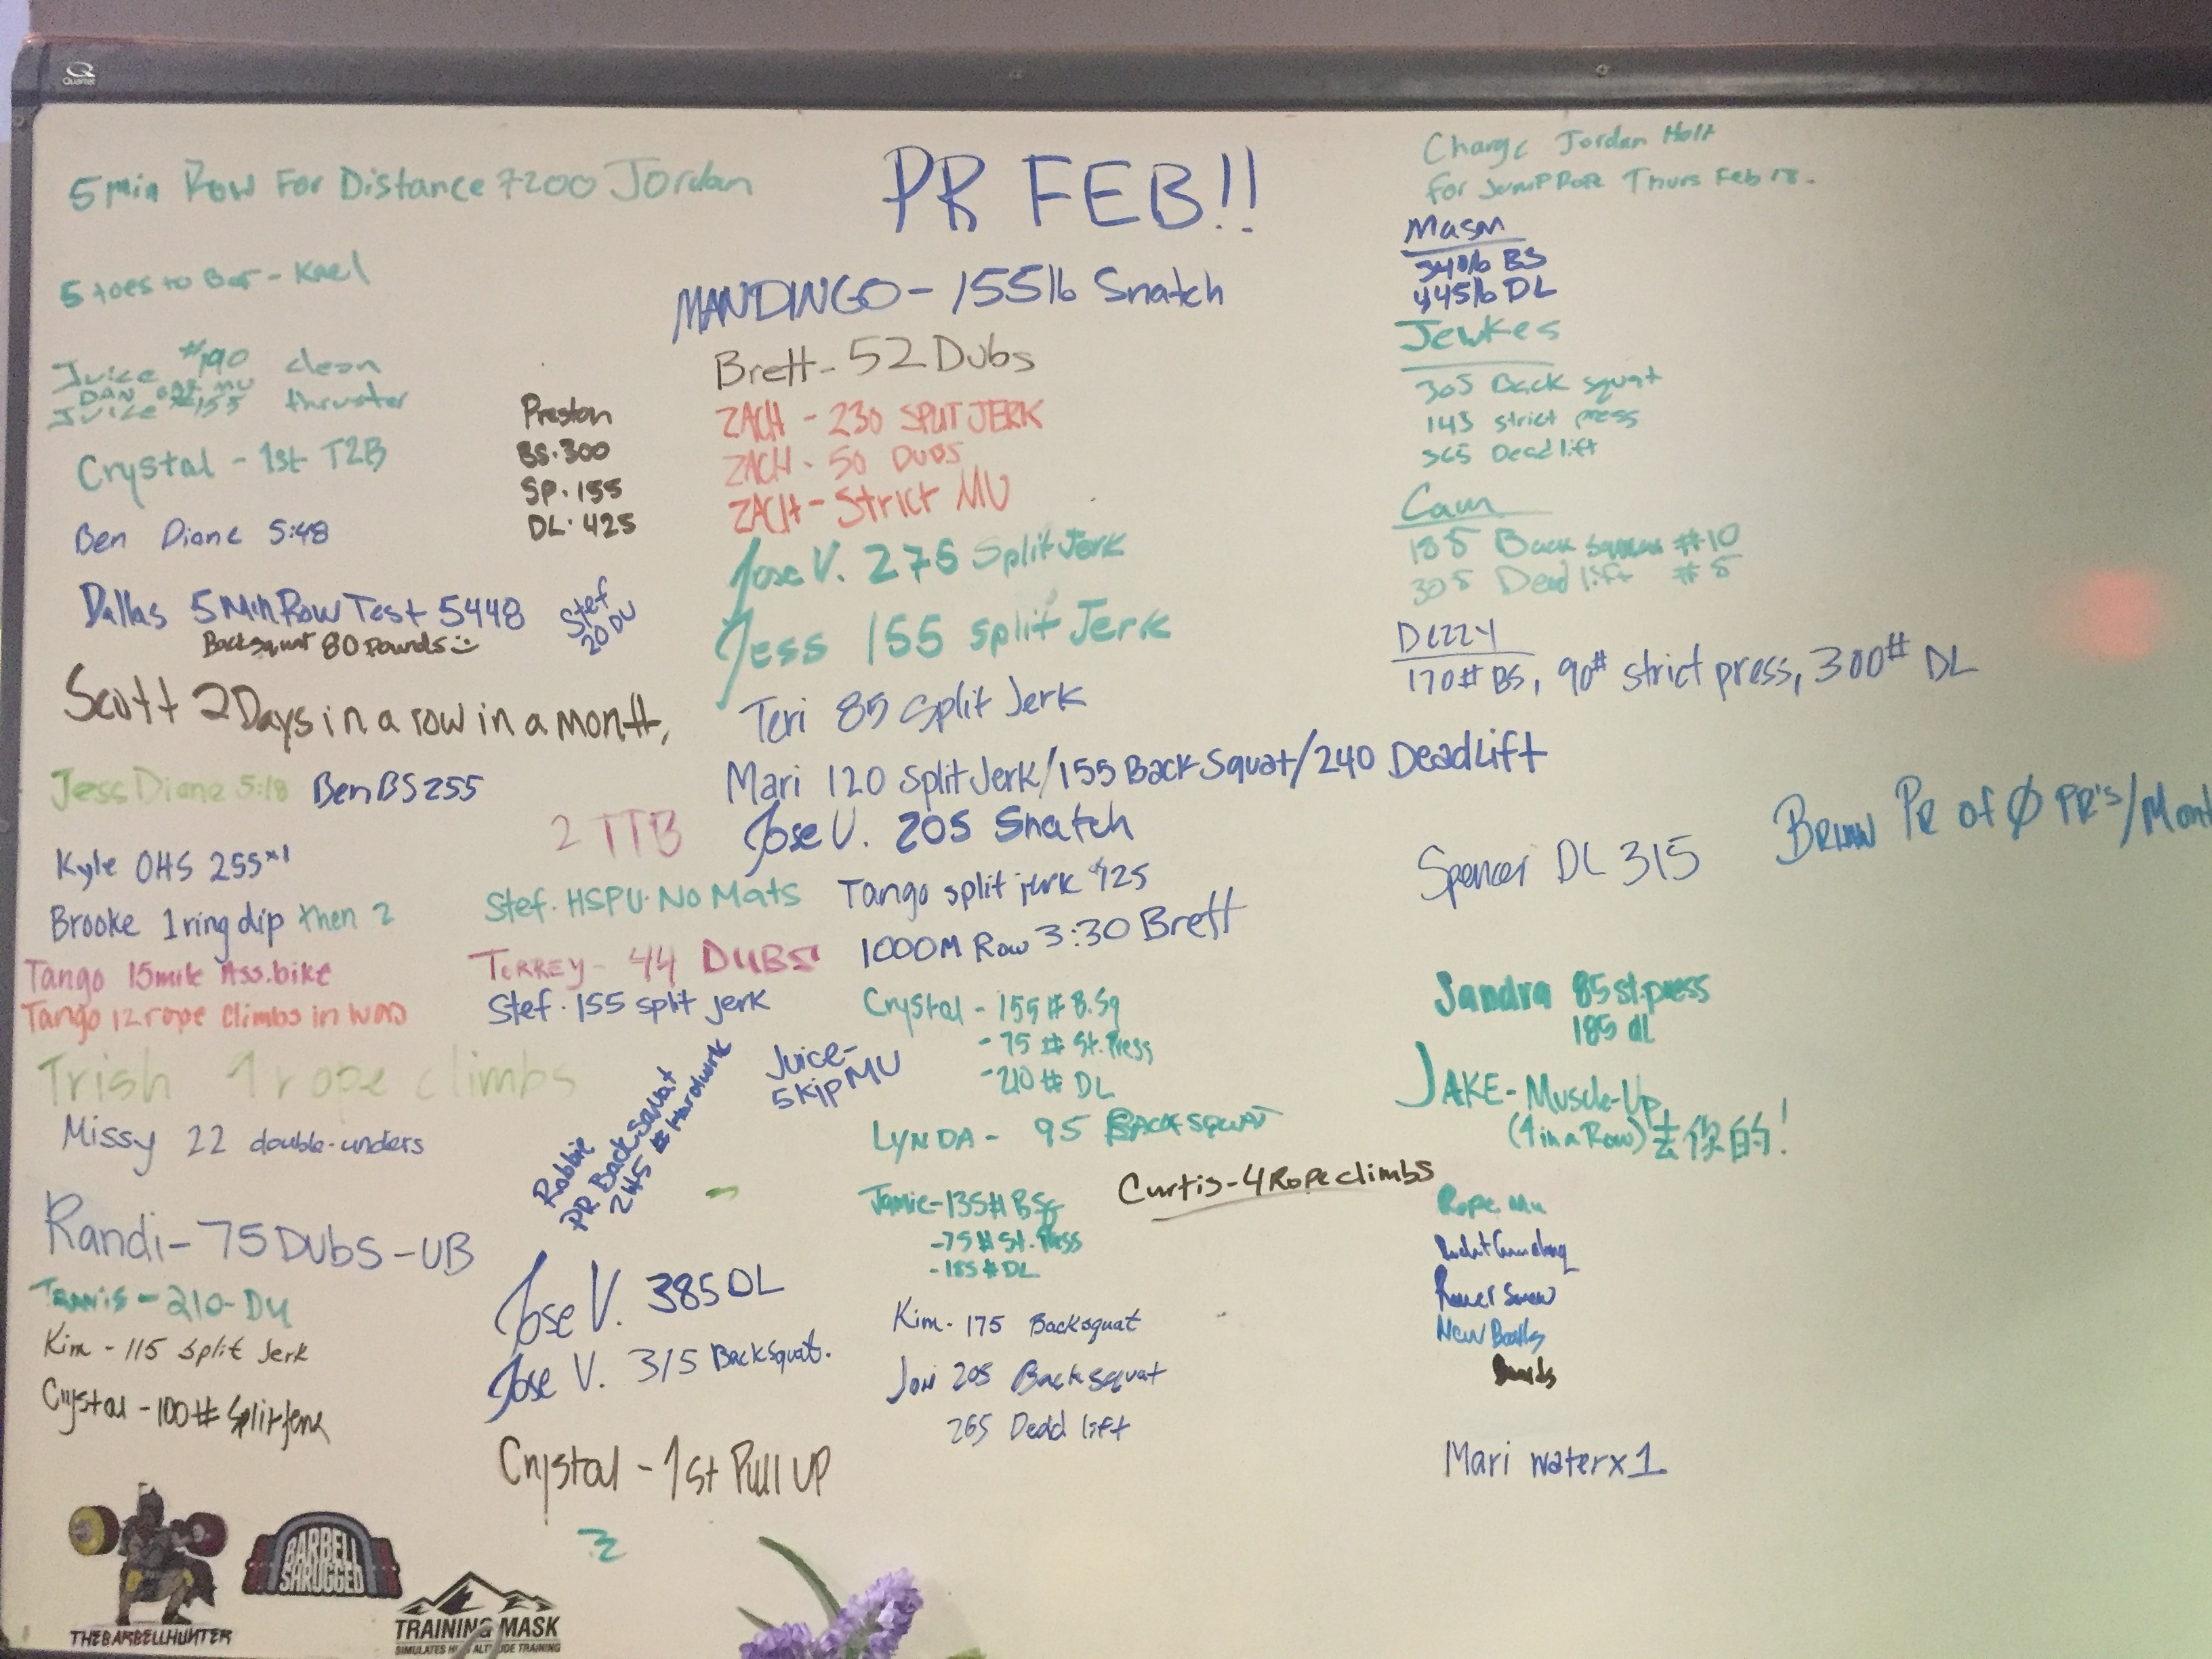 Quartet
5 Min Row For Distance 7200 Jordan
5 toes to Bar - Kael
Juice #190 clean
DAN BAR MU
Juice #155 thruster
Crystal - 1st T2B
Ben Diane 5:48
Preston
BS. 300
SP. 155
DL. 425
Dallas 5 Min Row Test 5448
Backsquat 80 Pounds
Stef
20 DU
Scott 2 Days in a row in a month,
Jess Diane 5:18
Ben BS 255
Kyle OHS 255x1
Brooke 1 ring dip then 2
Tango 15 mile Ass. bike
Tango 12 rope climbs in WOD
Trish 9 rope climbs
Missy 22 double-unders
Randi - 75 Dubs - UB
Travis - 210 - DU
Kim - 115 split Jerk
Crystal - 100# Split Jerk
2 TTB
Stef. HSPU. No Mats
Torrey - 44 DUBS
Stef. 155 split jerk
Robbie
PR Back Squat
245 # Hardwork
Juice -
SkipMU
Jose V. 385 DL
Jose V. 315 BackSquat.
Crystal - 1st Pull UP
PR FEB!!
MANDINGO - 155lb Snatch
Brett - 52 Dubs
ZACH - 230 SPLIT JERK
ZACH - 50 DUBS
ZACH - Strict MU
Jose V. 275 Split Jerk
Jess 155 split Jerk
Teri 85 Split Jerk
Mari 120 Split Jerk/155 Back Squat/240 DeadLift
Jose V. 205 Snatch
Tango split jerk #125
1000M Row 3:30 Brett
Crystal - 155 # B.Sq
- 75 # St. Press
- 210 # DL
LYNDA - 95 BACK SQUAT
Curtis - 4 Rope climbs
Jamie - 135# BSq
- 75 # St. Press
- 185 # DL
Kim - 175 Backsquat
Jori 205 Back squat
265 Dead lift
Charge Jordan Holt
for Jump Rope Thurs Feb 18.
Mason
340lb BS
445lb DL
Jewkes
305 Back squat
145 strict press
365 Dead lift
Cam
185 Back Squat #10
305 Dead lift #5
Dezzy
170# BS, 90# strict press, 300# DL
Spencer DL 315
Brian PR of Ø PR's/Mont
Sandra 85 st. press
185 dL
JAKE - Muscle-Up
(4 in a Row) 去你的!
Rope Mu
New Balls
Bands
Mari water x 1
THEBARBELLHUNTER
BARBELL
SHRUGGED
TRAINING MASK
SIMULATES HIGH ALTITUDE TRAINING